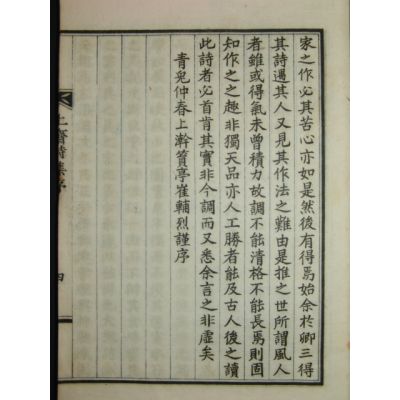 家之作必其苦心亦如是然後有得焉始余於卿三得
其詩遇其人又見其作法之難由是推之世所謂風人
者雖或得氣未曾積力故調不能清格不能長焉則固
知作之之趣非獨天品亦人工勝者能及古人後之讀
此詩者必首肯其實非今調而又悉余言之非虛矣
青兎仲春上澣篔亭崔輔烈謹序
齋詩集序
四